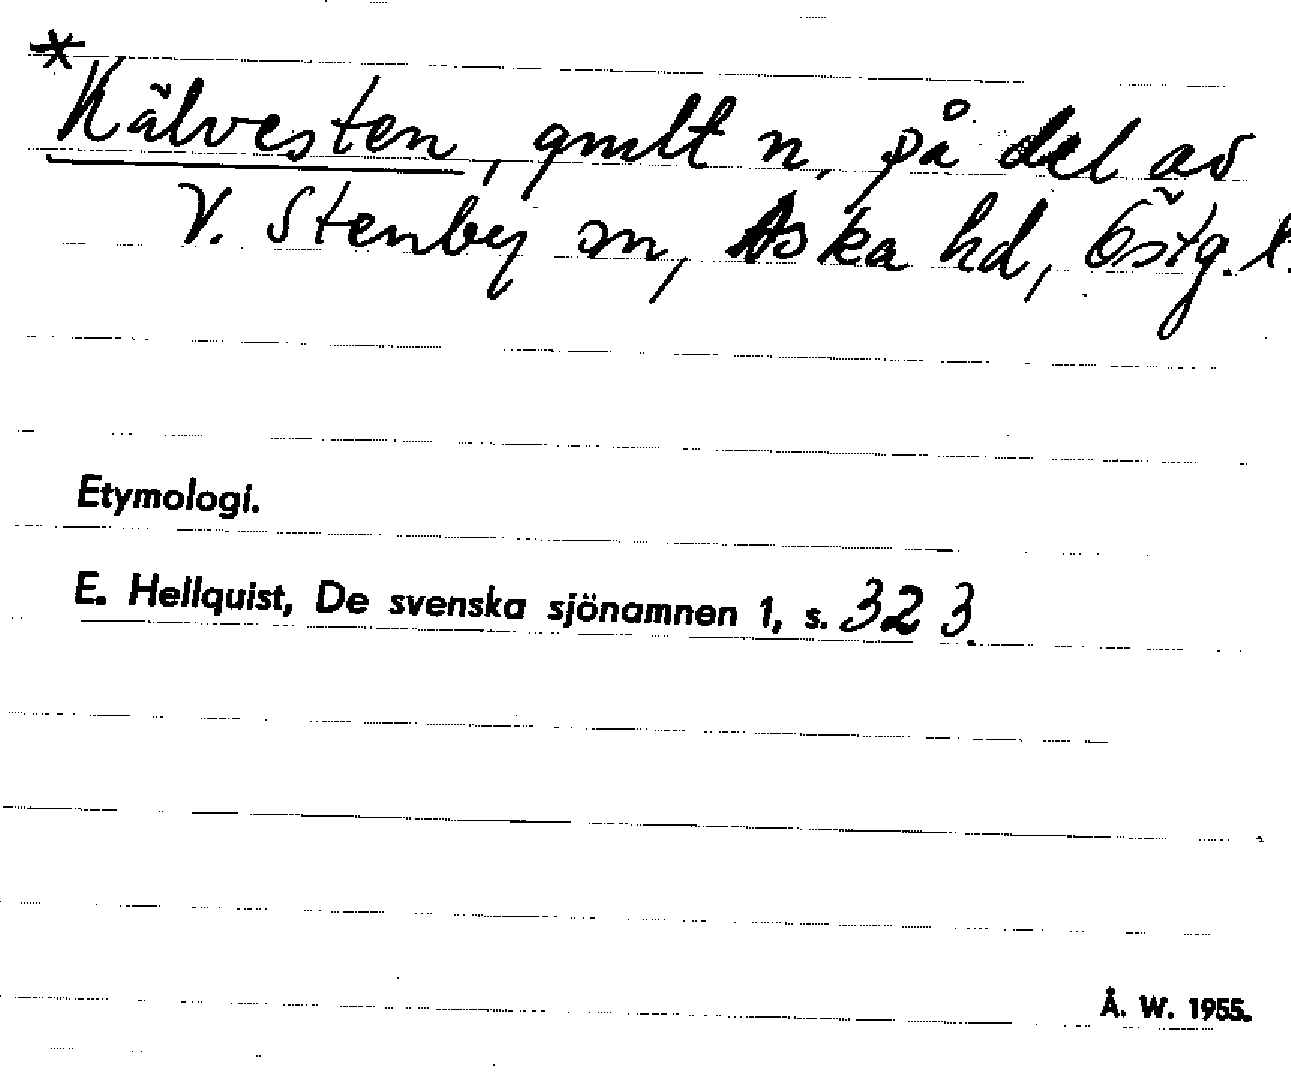 *Kälvesten, gmlt n. på del av
V. Stenby sn, Aska hd, Östg. l.
Etymologi.
E. Hellquist, De svenska sjönamnen 1, s. 323.
Å. W. 1955.